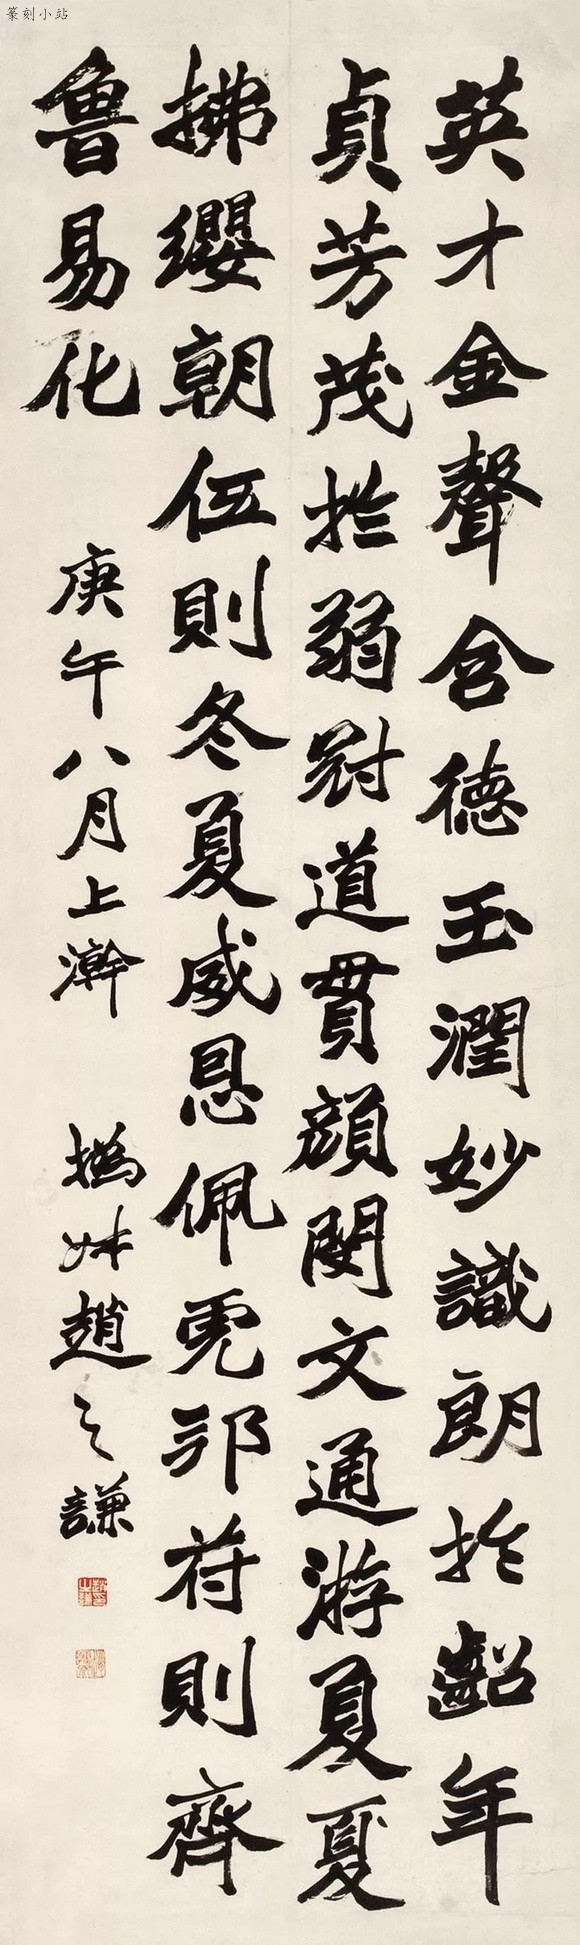 篆刻小站
英才金聲含德玉潤妙識朗扵齠年
貞芳茂扵弱冠道貫顏閔文通游夏夏
拂纓朝伍則冬夏威恩佩虎邦苻則齊
魯易化
庚午八月上澣 撝叔趙之謙